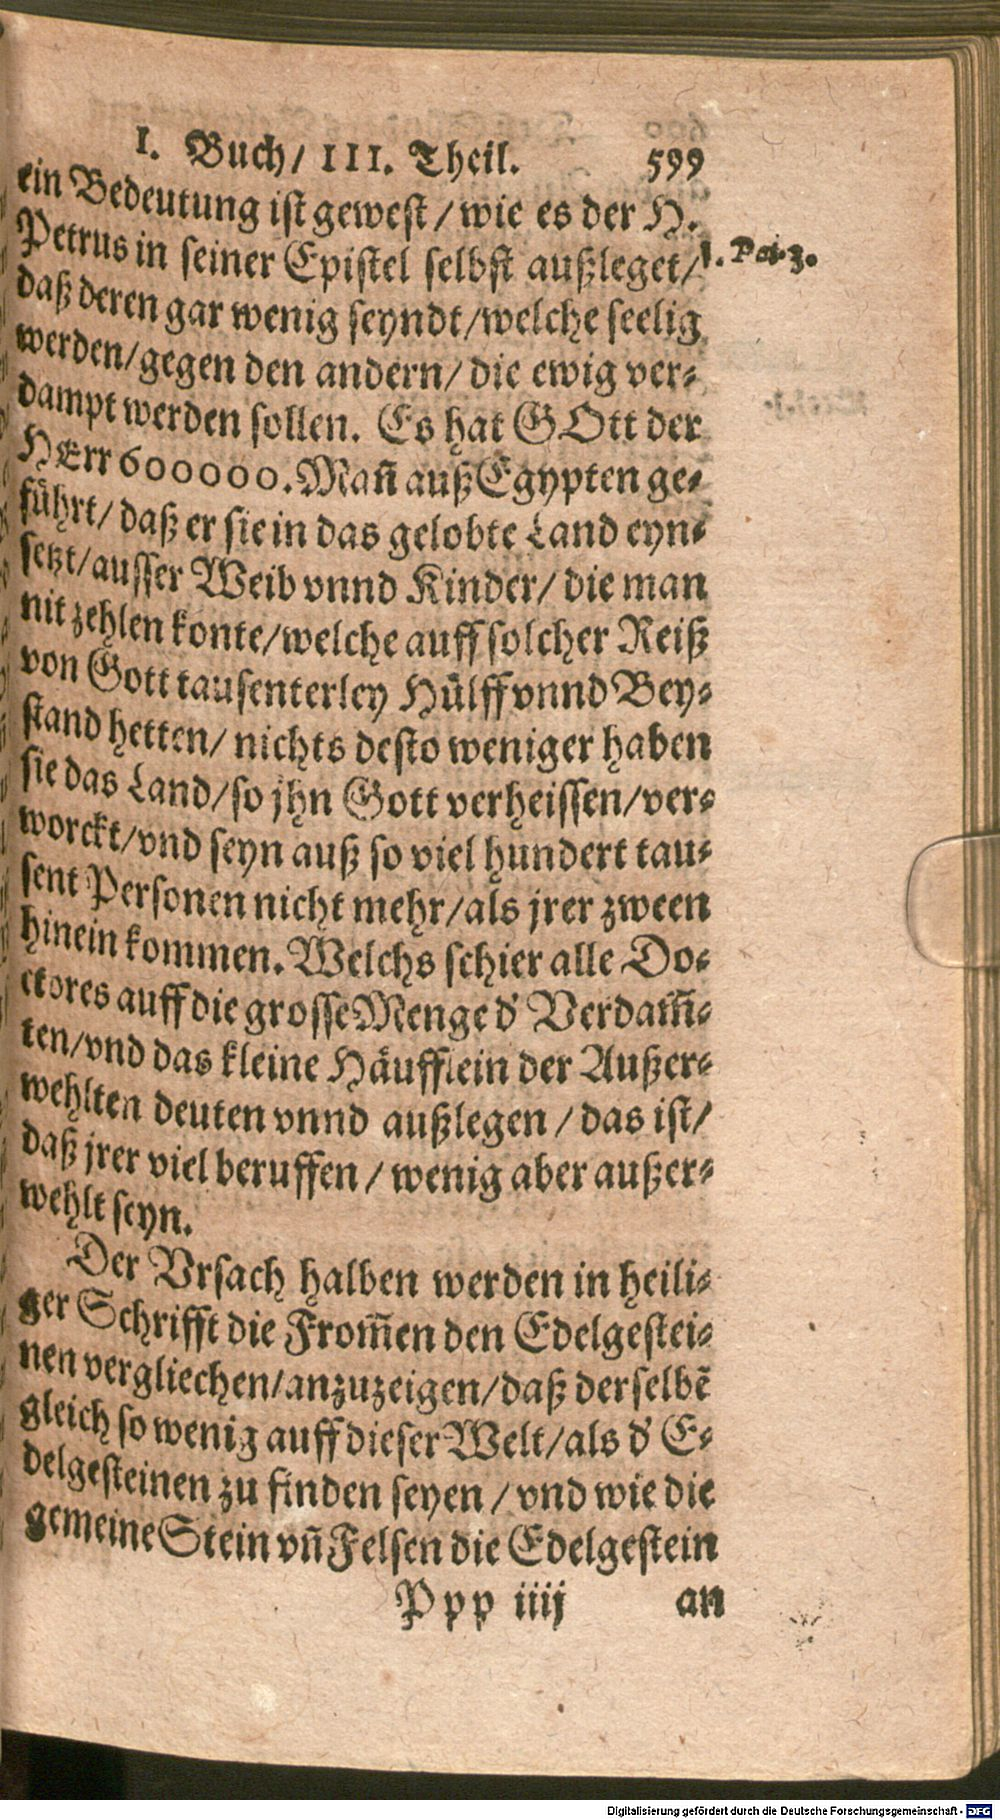 I. Buch/ III. Theil. 599
ein Bedeutung ist gewest/ wie es der H.
Petrus in seiner Epistel selbst außleget/
1. Pet. 3.
daß deren gar wenig seyndt/welche seelig
werden/gegen den andern/ die ewig ver-
dampt werden sollen. Es hat GOtt der
HErr 600000. Mañ auß Egypten ge-
führt/ daß er sie in das gelobte Land eyn-
setzt/ausser Weib vnnd Kinder/ die man
nit zehlen konte/welche auff solcher Reiß
von Gott tausenterley Hülff vnnd Bey-
stand hetten/ nichts desto weniger haben
sie das Land/so jhn Gott verheissen/ver-
worckt/vnd seyn auß so viel hundert tau-
sent Personen nicht mehr/als jrer zween
hinein kommen. Welchs schier alle Do-
ctores auff die grosse Menge d' Verdam̃-
ten/vnd das kleine Häufflein der Außer-
wehlten deuten vnnd außlegen/ das ist/
daß jrer viel beruffen/ wenig aber außer-
wehlt seyn.
Der Vrsach halben werden in heili-
ger Schrifft die From̃en den Edelgestei-
nen vergliechen/anzuzeigen/daß derselbẽ
gleich so wenig auff dieser Welt/als d' E-
delgesteinen zu finden seyen/ vnd wie die
gemeine Stein vñ Felsen die Edelgestein
Ppp iiij an
Digitalisierung gefördert durch die Deutsche Forschungsgemeinschaft - DFG